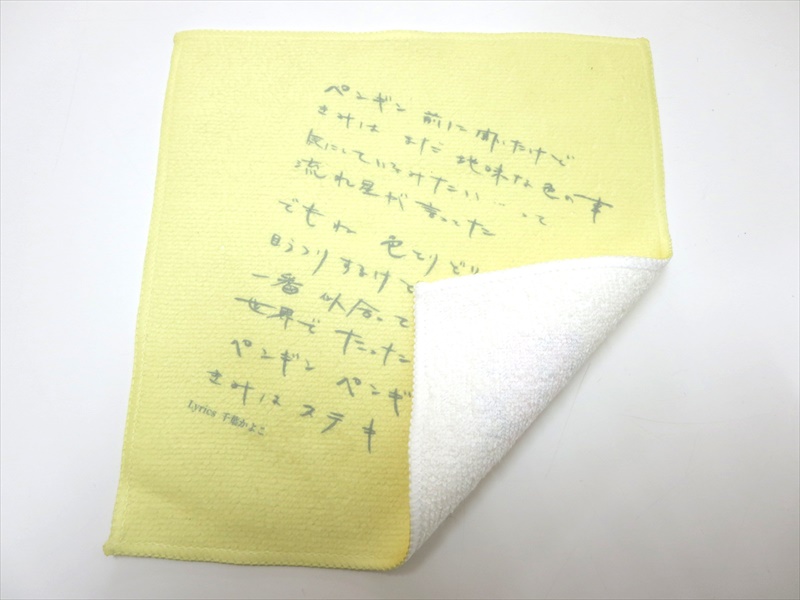 ペンギン 前に聞いたけど
きみは まだ 地味な色の事
気にしているみたい…って
流れ星が 言ってた
でもね 色とりどり
目うつりするけど
一番 似合って
世界で たった
ペンギン ペンギ
きみは ステキ
Lyrics 千葉かよこ